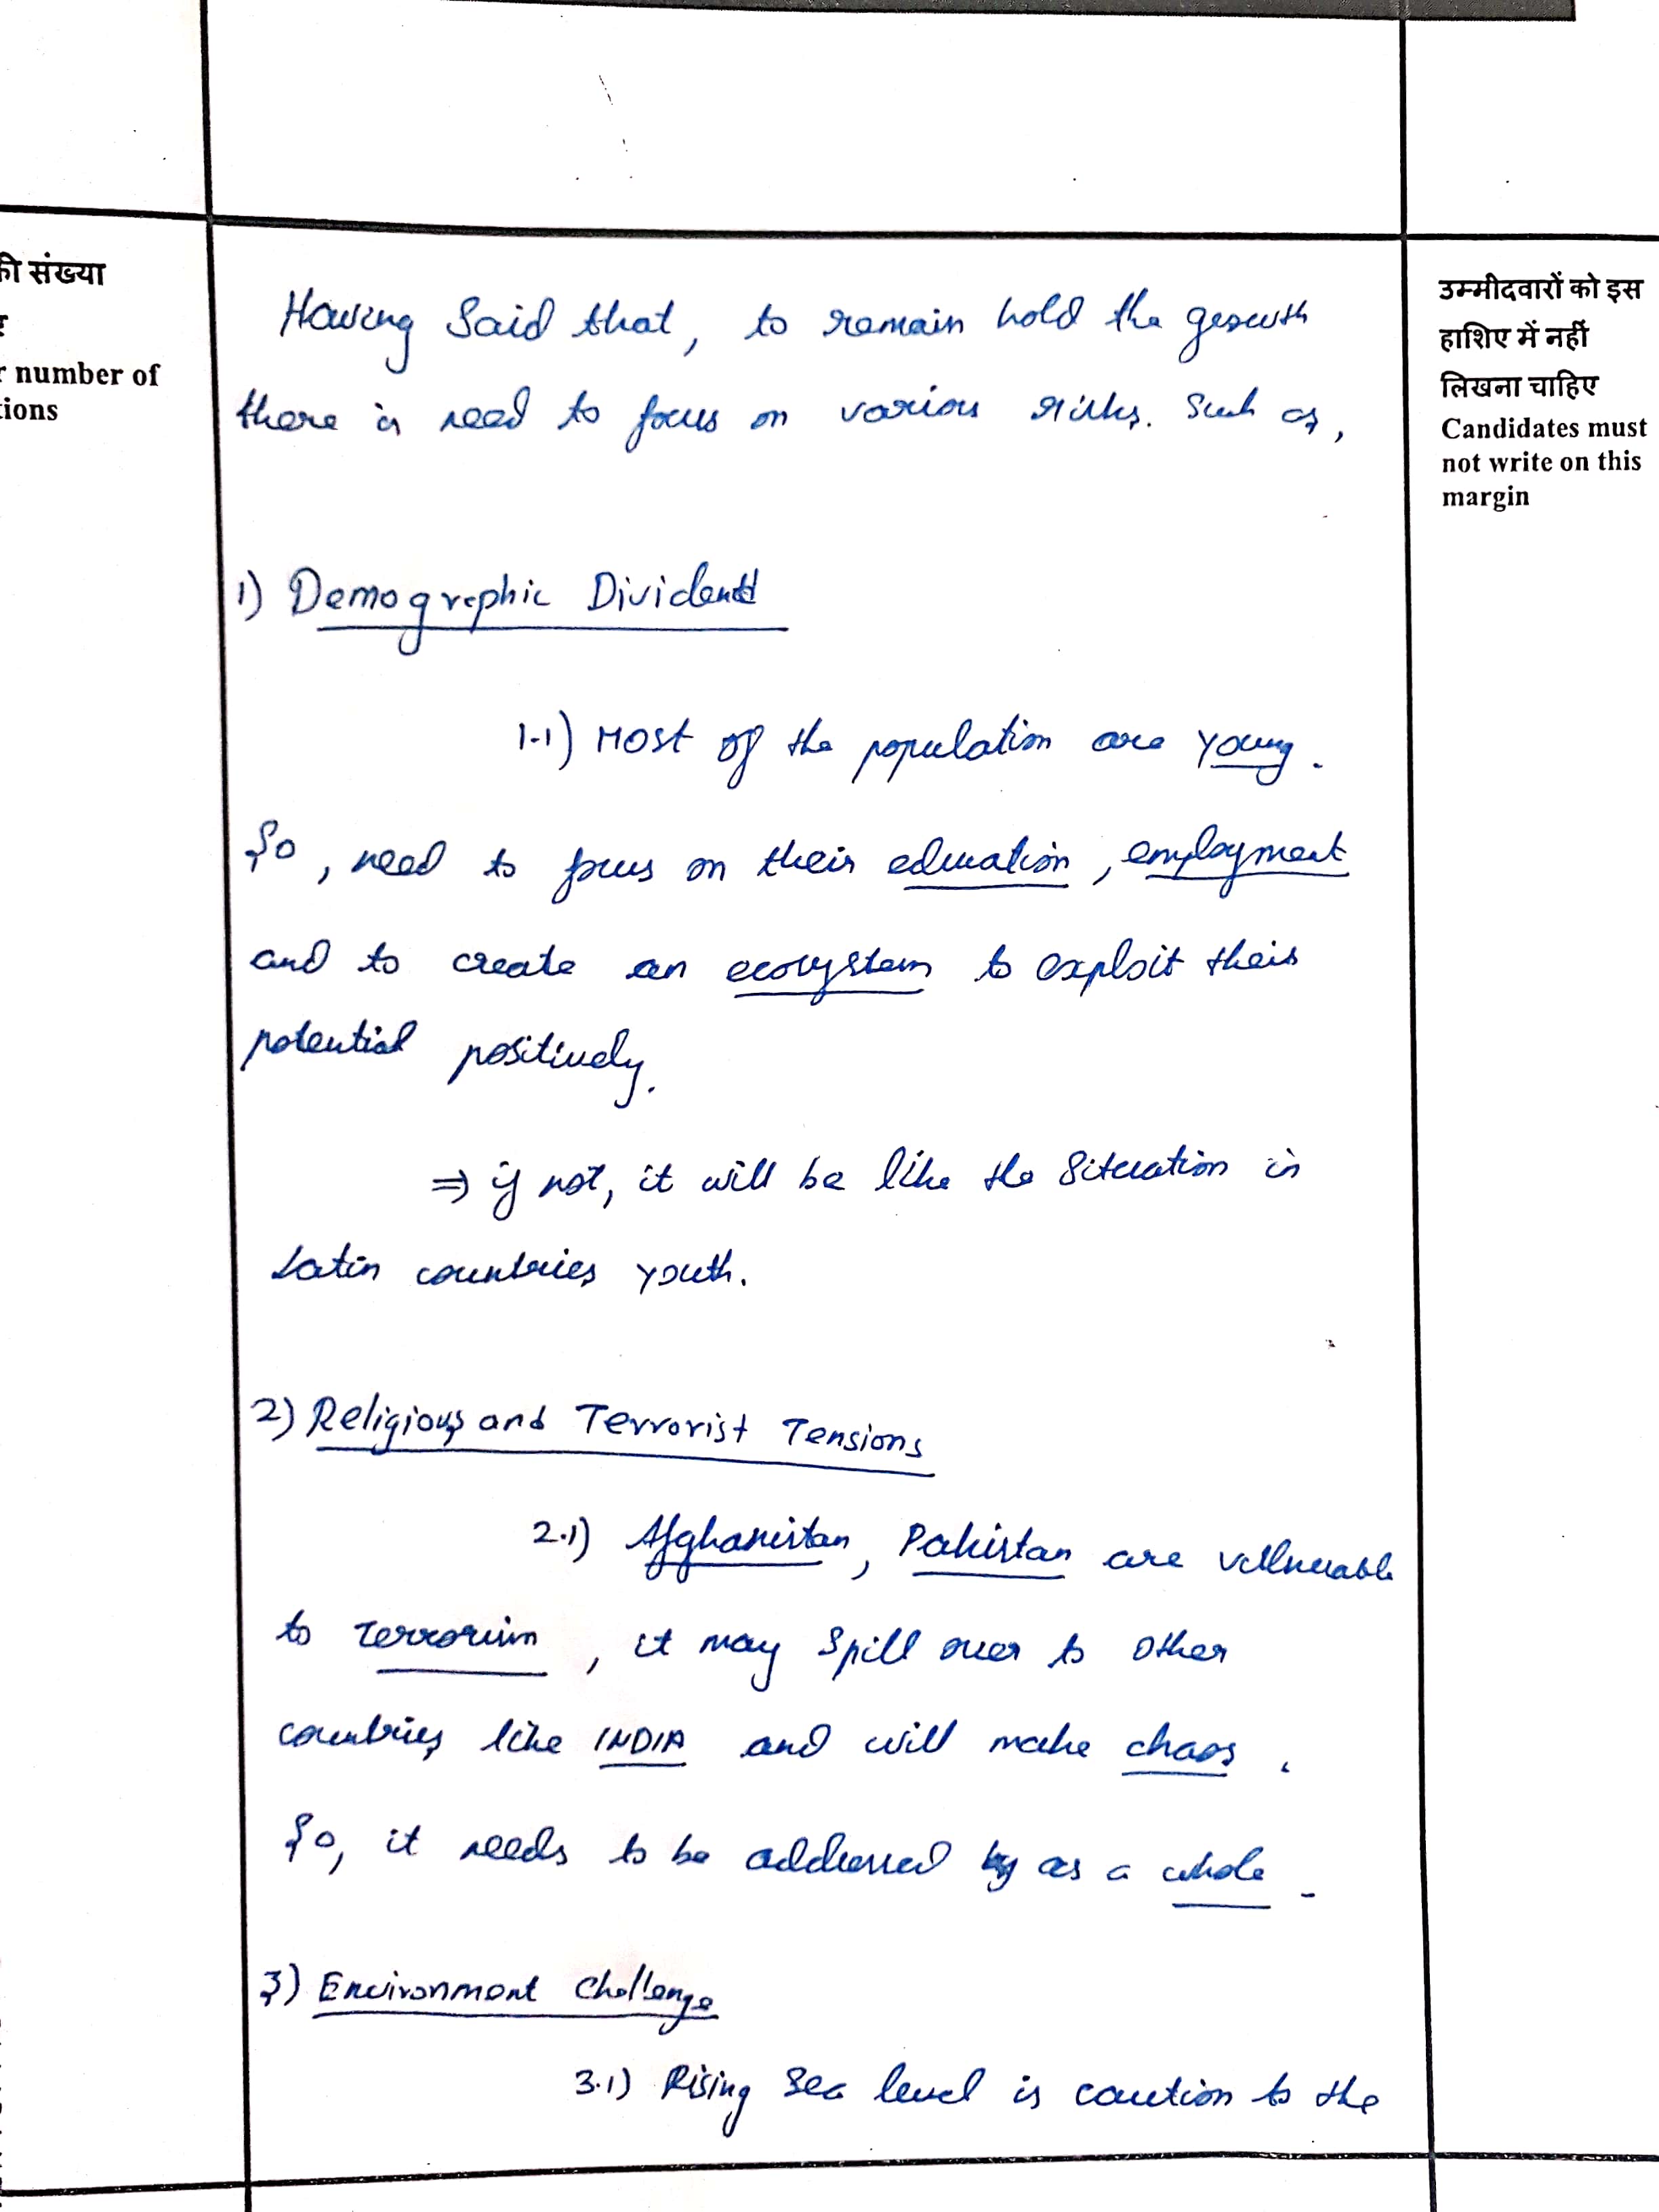 की संख्या
number of
ions
उम्मीदवारों को इस
हाशिए में नहीं
लिखना चाहिए
Candidates must
not write on this
margin
Having Said that, to remain hold the growth
there is need to focus on various risks. Such as,
1) Demographic Dividend
1.1) Most of the population are young.
So, need to focus on their education, employment
and to create an ecosystem to exploit their
potential positively.
⇒ if not, it will be like the Situation in
Latin countries youth.
2) Religious and Terrorist Tensions
2.1) Afghanistan, Pakistan are vullnerable
to Terrorism, it may Spill over to other
countries like INDIA and will make chaos.
So, it needs to be addressed as a whole.
3) Environment Challenge
3.1) Rising Sea level is caution to the